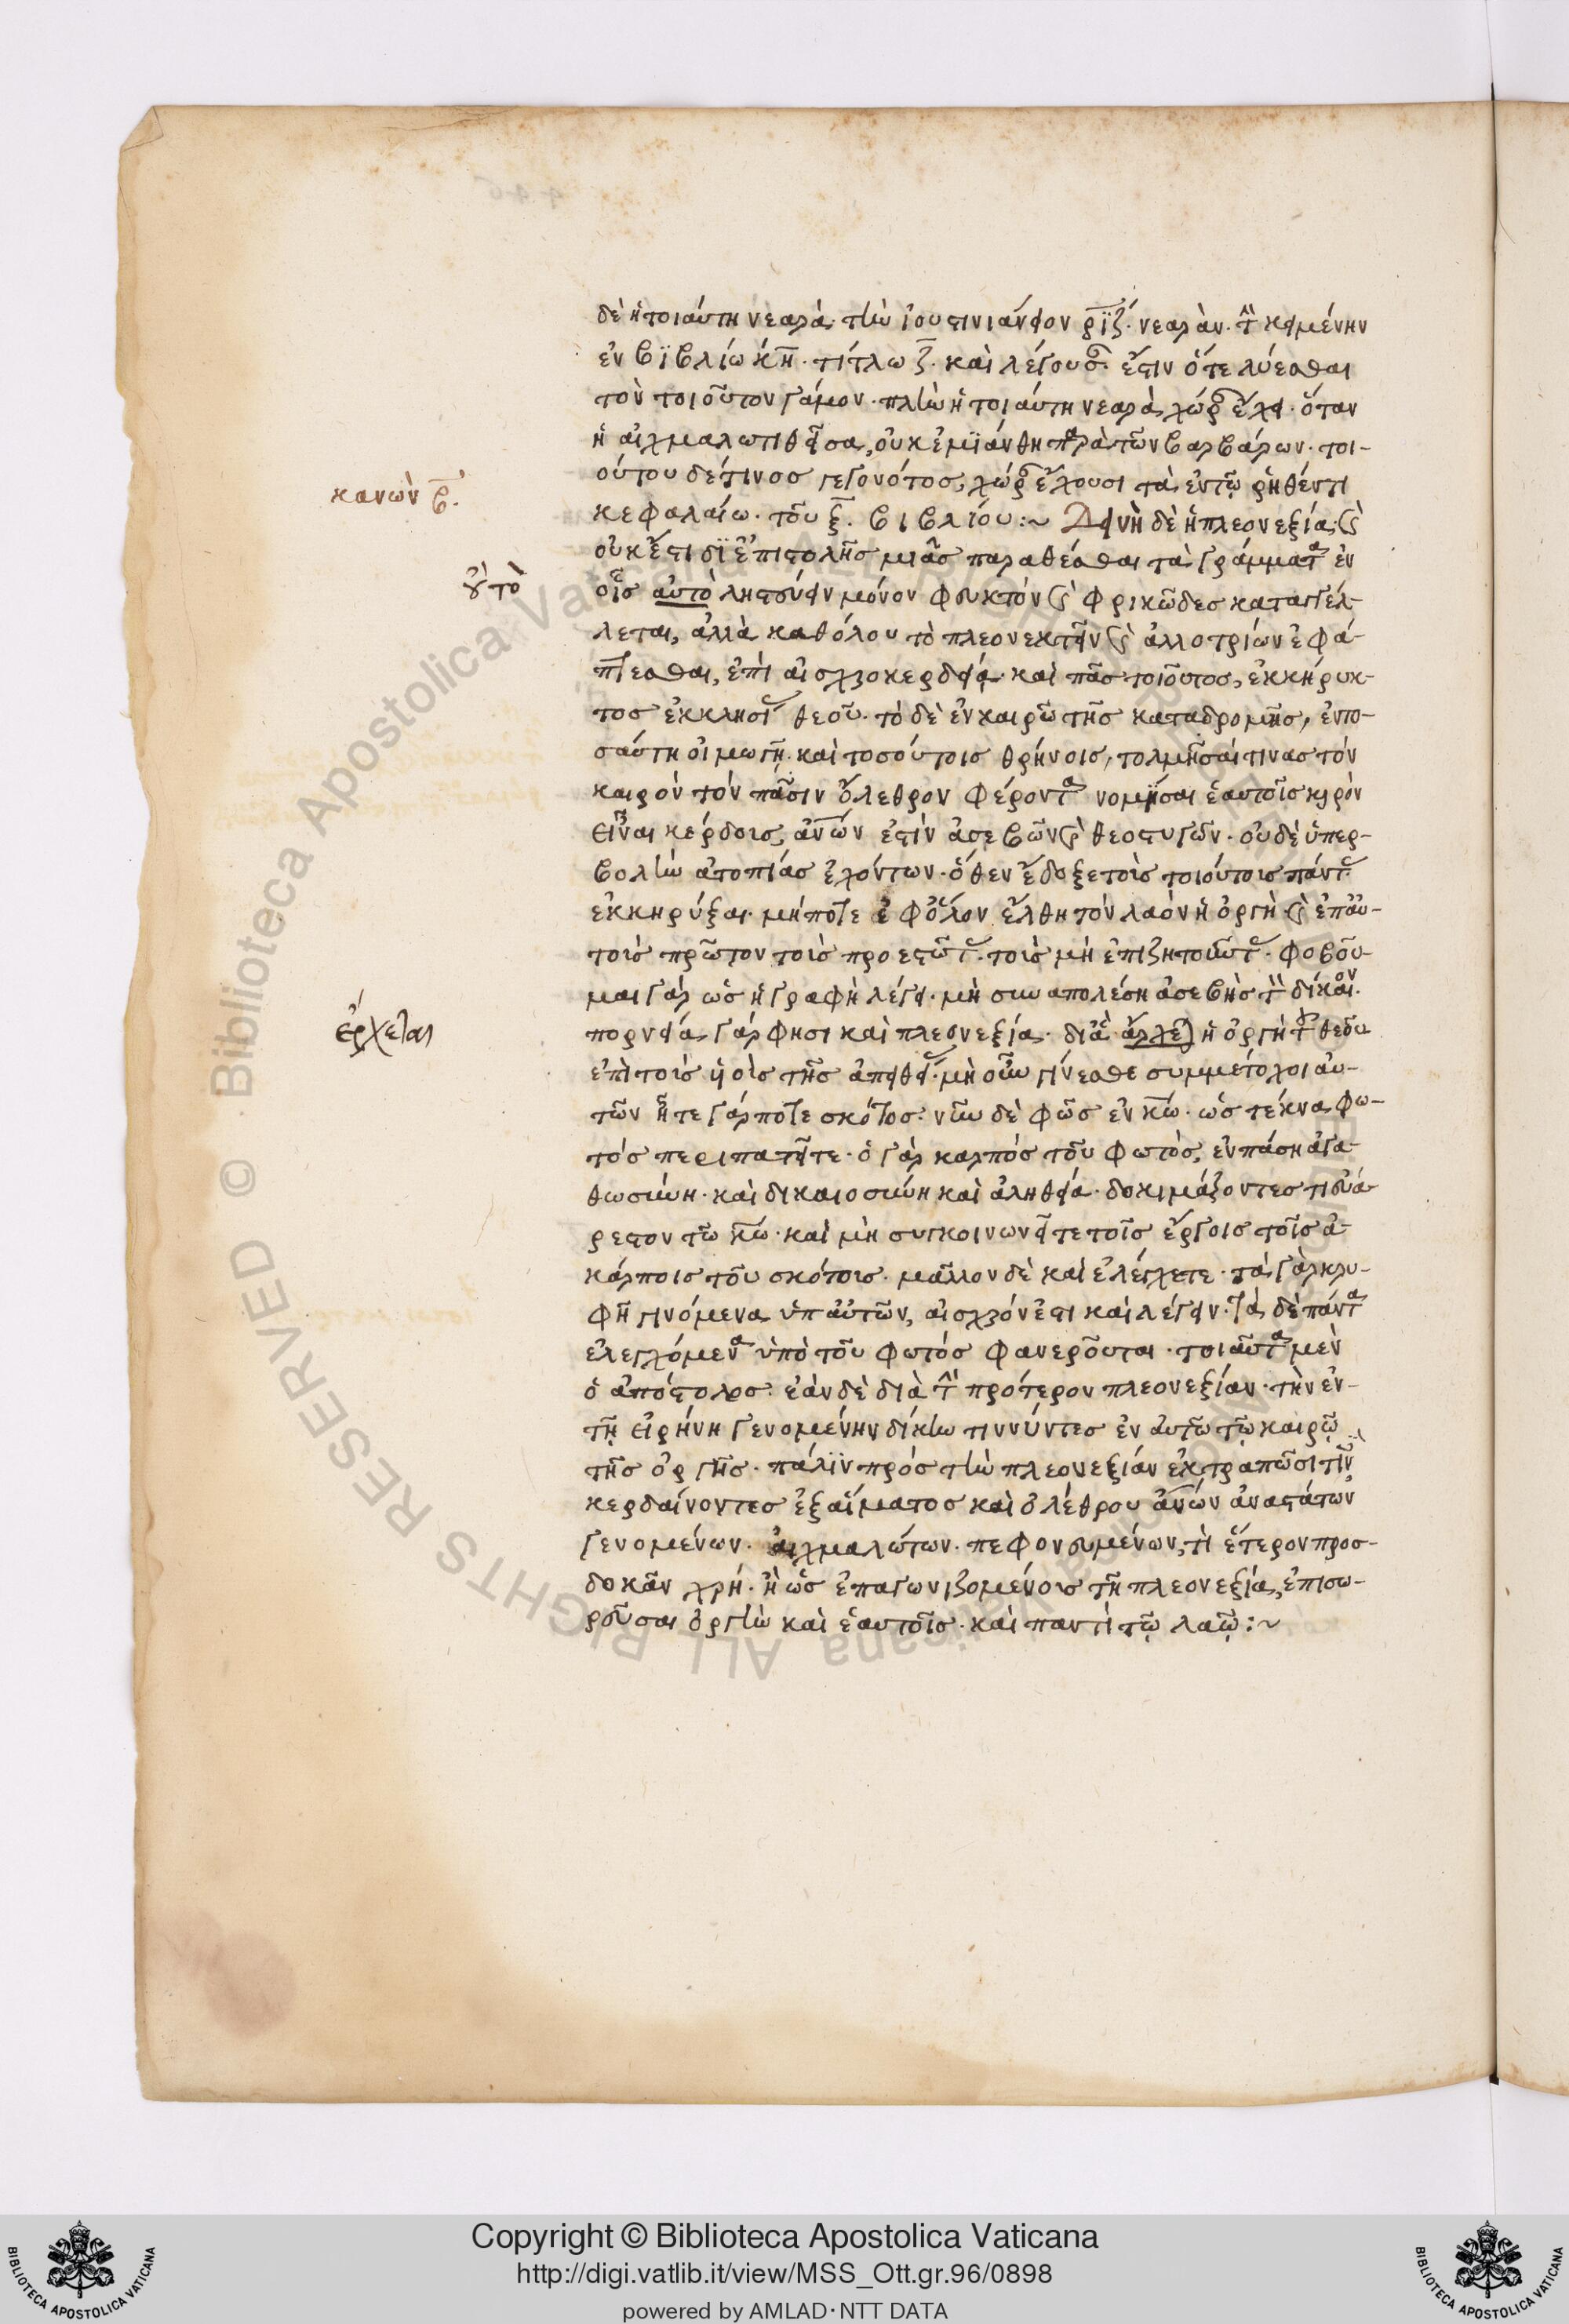 δὲ ἡ τοιαύτη νεαρὰ τὴν ἰουστινιάνειον ριζ. νεαρὰν. τὴν κειμένην
ἐν βιβλίω κη. τίτλω ζ. καὶ λέγουσαν. ἔστιν ὅτε λύεσθαι
τὸν τοιοῦτον γάμον. πλὴν ἡ τοιαύτη νεαρὰ, χώραν ἔχει. ὅταν
ἡ αἰχμαλωτισθεῖσα, οὐκ ἐμιάνθη παρὰ τῶν βαρβάρων. τοι-
ούτου δέ τινοσ γεγονότοσ, χώραν ἔχουσι τὰ ἐν τῷ ῥηθέντι
κανὼν β.
κεφαλαίω. τοῦ ξ. βιβλίου :~ Δεινὴ δὲ ἡ πλεονεξία, καὶ
οὐκ ἔστι δι ἐπιστολῆσ μιᾶσ παραθέσθαι τὰ γράμματα ἐν
οὐ τὸ
οἷσ αὐτὸ ληστεύειν μόνον φευκτὸν καὶ φρικῶδεσ καταγγέλ-
λεται, ἀλλὰ καθόλου τὸ πλεονεκτεῖν καὶ ἀλλοτρίων ἐφά-
πτεσθαι, ἐπὶ αἰσχροκερδεία. καὶ πᾶσ τοιοῦτοσ, ἐκκήρυκ-
τοσ ἐκκλησίας θεοῦ. τὸ δὲ ἐν καιρῶ τῆσ καταδρομῆσ, ἐν το-
σαύτη οἰμωγῇ. καὶ τοσούτοισ θρήνοισ, τολμῆσαί τινασ τὸν
καιρὸν τὸν πᾶσιν ὄλεθρον φέροντα νομίσαι ἑαυτοῖσ καιρὸν
εἶναι κέρδουσ, ἀνων ἐστὶν ἀσεβῶν καὶ θεοστυγῶν. οὐδὲ ὑπερ-
βολὴν ἀτοπίασ ἐχόντων. ὅθεν ἔδοξε τοὺσ τοιούτουσ πάντας
ἐκκηρύξαι. μήποτε ἐφ ὅλον ἔλθη τὸν λαὸν ἡ ὀργὴ καὶ ἐπ αὐ-
τοὺσ πρῶτον τοὺσ προεστῶτας. τοὺσ μὴ ἐπιζητοῦντας. φοβοῦ-
μαι γὰρ ὡσ ἡ γραφὴ λέγει. μὴ συναπολέση ἀσεβὴσ τὸν δίκαιον.
ἔρχεται
πορνεία γάρ φησι καὶ πλεονεξία. διὰ ἄρχεται ἡ ὀργὴ τοῦ θεοῦ
ἐπὶ τοὺσ υἱοὺσ τῆσ ἀπειθείας. μὴ οὖν γίνεσθε συμμέτοχοι αὐ-
τῶν ἦτε γάρ ποτε σκότοσ. νῦν δὲ φῶσ ἐν κω. ὡσ τέκνα φω-
τὸσ περιπατεῖτε. ὁ γὰρ καρπὸσ τοῦ φωτὸσ, ἐν πάση ἀγα-
θωσύνη. καὶ δικαιοσύνη καὶ ἀληθεία. δοκιμάζοντεσ τί εὐά-
ρεστον τῶ κω. καὶ μὴ συγκοινωνεῖτε τοῖσ ἔργοισ τοῖσ ἀ-
κάρποισ τοῦ σκότουσ. μᾶλλον δὲ καὶ ἐλέγχετε. τὰ γὰρ κρυ-
φῆ γινόμενα ὑπ αὐτῶν, αἰσχρόν ἐστι καὶ λέγειν. τὰ δὲ πάντα
ἐλεγχόμενα ὑπὸ τοῦ φωτὸσ φανεροῦται. τοιαῦτα μὲν
ὁ ἀπόστολοσ. ἐὰν δὲ διὰ τὴν πρότερον πλεονεξίαν. τὴν ἐν-
τῇ εἰρήνη γενομένην δίκην τιννύντεσ ἐν αὐτῶ τῷ καιρῷ
τῆσ ὀργῆσ. πάλιν πρὸσ τὴν πλεονεξίαν ἐκτραπῶσί τινες
κερδαίνοντεσ ἐξ αἵματοσ καὶ ὀλέθρου ἀνων ἀναστάτων
γενομένων. αἰχμαλώτων. πεφονευμένων, τί ἕτερον προσ-
δοκᾶν χρή. ἢ ὡσ ἐπαγωνιζομένουσ τῇ πλεονεξία, ἐπισω-
ρεῦσαι ὀργὴν καὶ ἑαυτοῖσ. καὶ παντὶ τῷ λαῷ :~
Copyright © Biblioteca Apostolica Vaticana
http://digi.vatlib.it/view/MSS_Ott.gr.96/0898
powered by AMLAD·NTT DATA